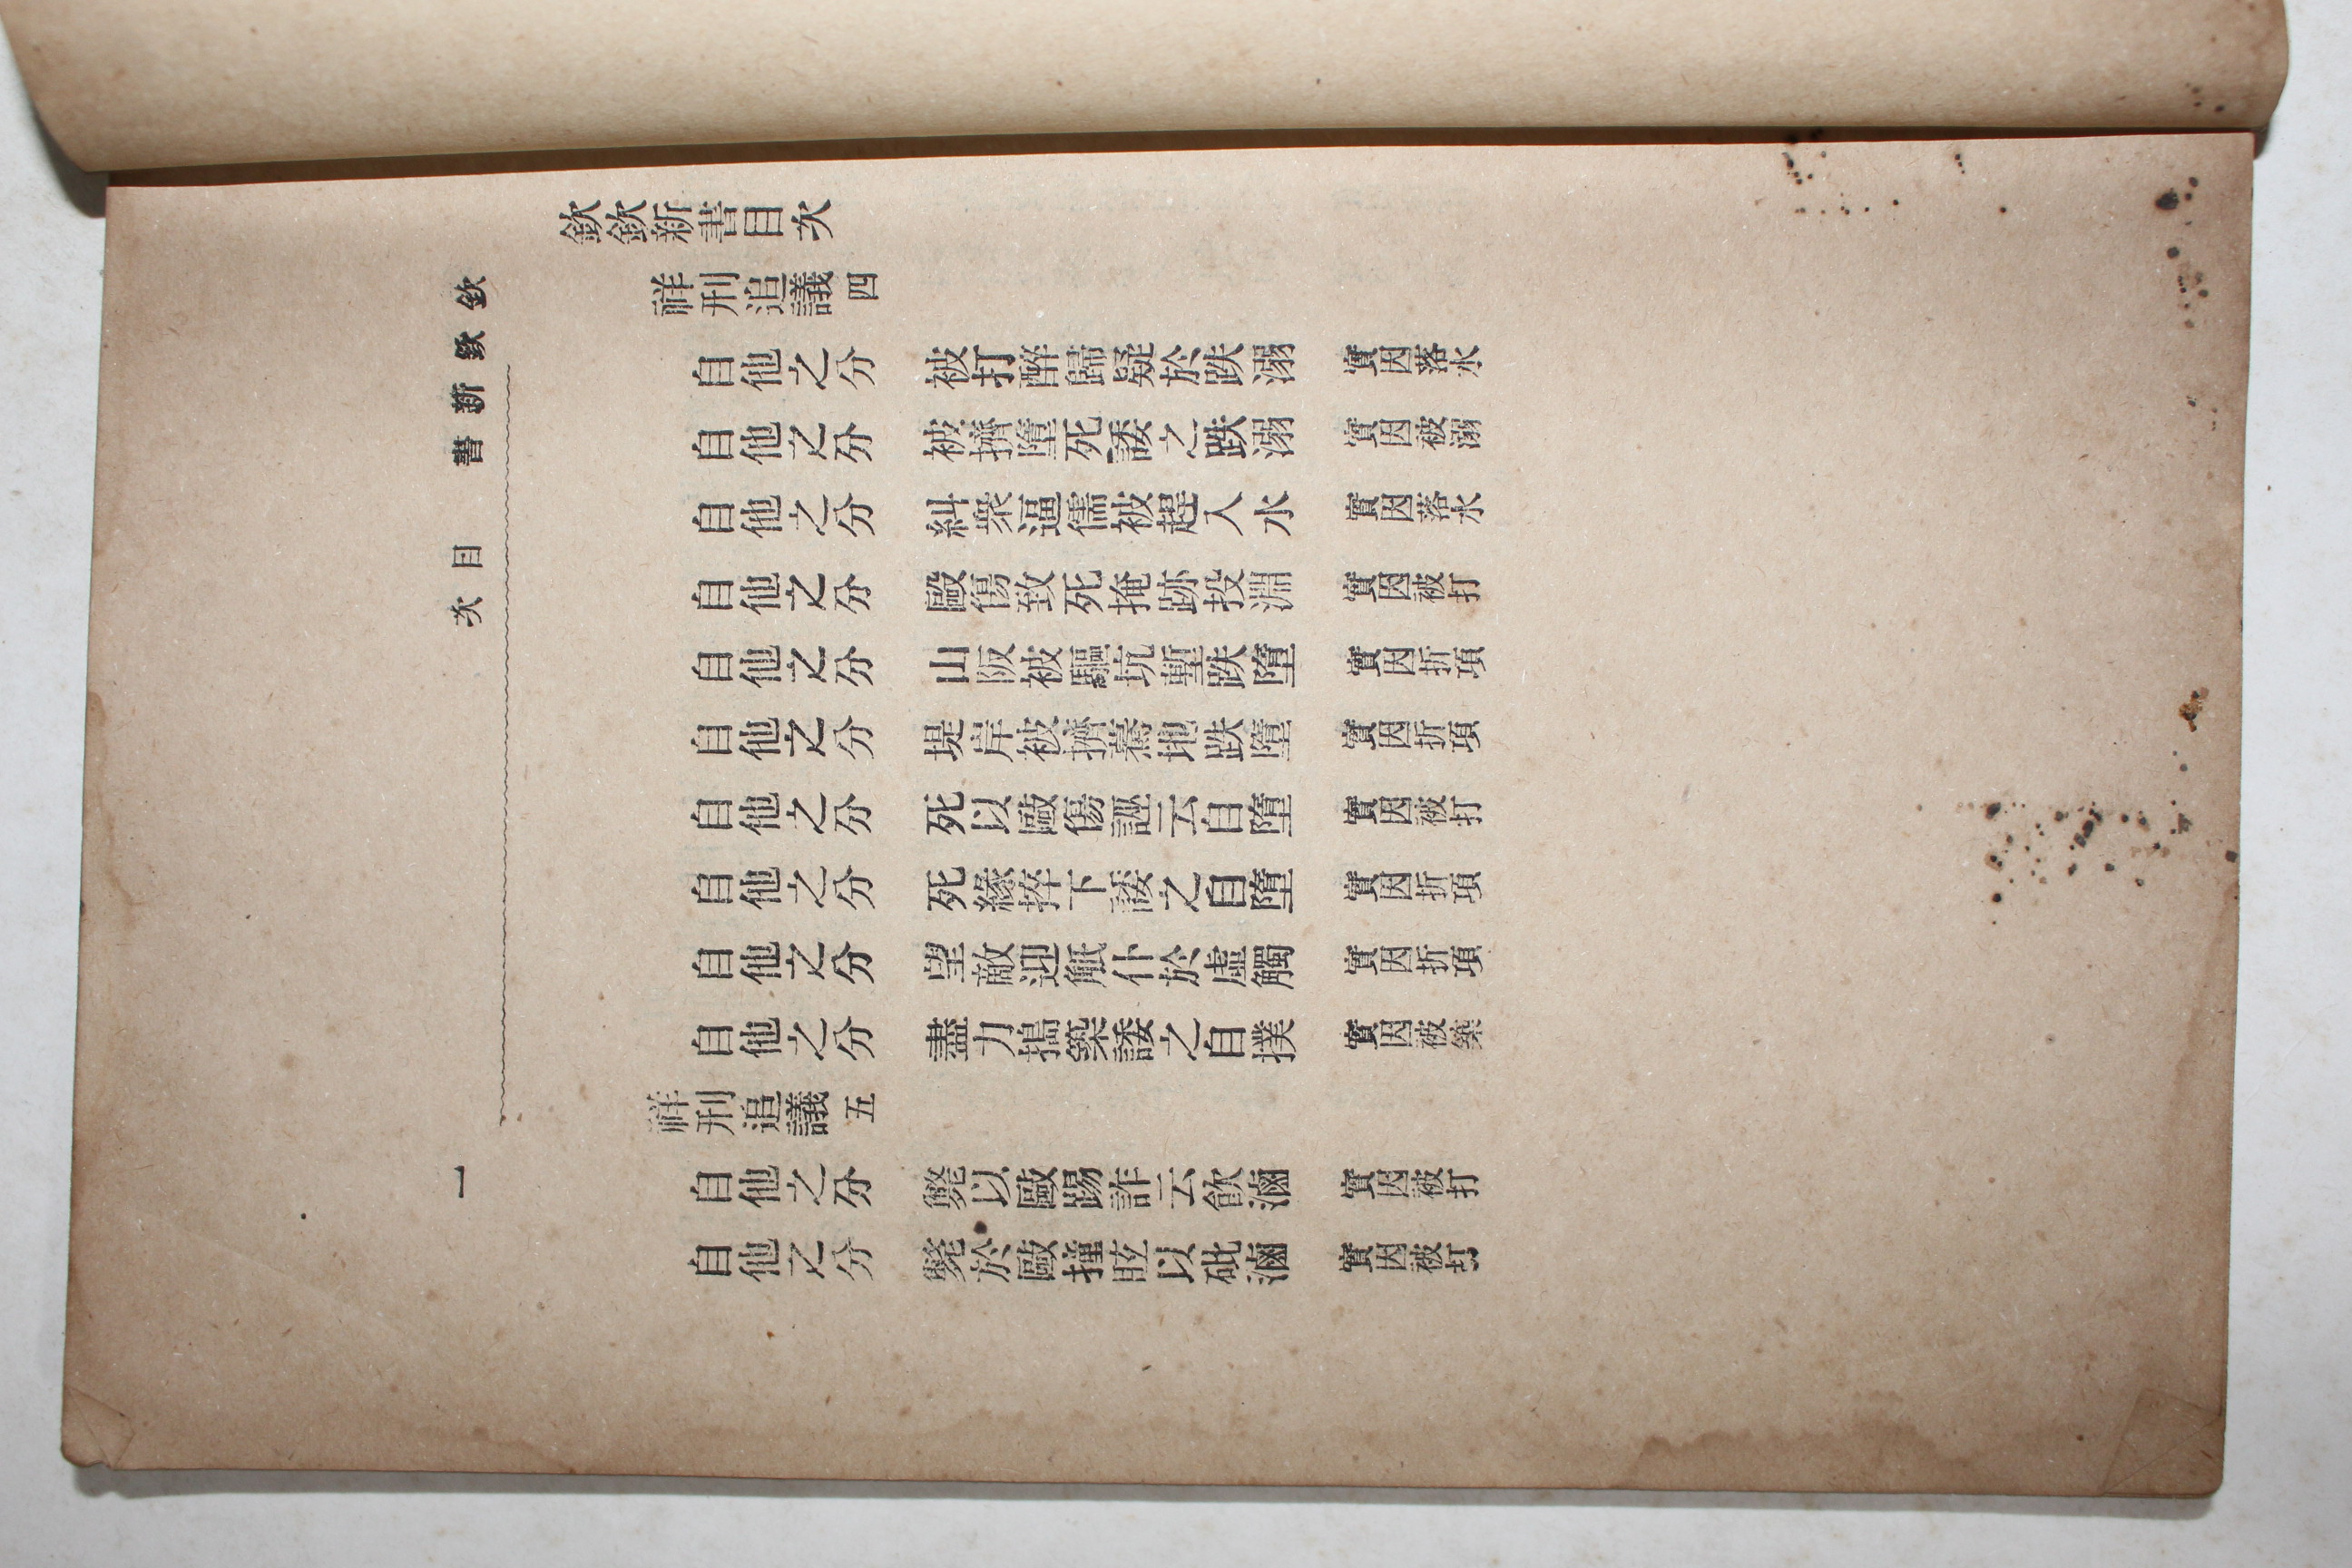 欽欽新書目次
祥刑追議 四
自他之分 被打醉歸疑於跌溺 實因落水
自他之分 被擠墮死諉之跌溺 實因被溺
自他之分 糾衆逼儒被趕入水 實因落水
自他之分 毆傷致死掩跡投淵 實因被打
自他之分 山阪被驅坑塹跌墮 實因折項
自他之分 堤岸被擠驀地跌墮 實因折項
自他之分 死以敺傷誣云自墮 實因被打
自他之分 死緣捽下諉之自墮 實因折項
自他之分 望敵迎觝仆於虛觸 實因折項
自他之分 盡力搗築諉之自撲 實因被築
祥刑追議 五
自他之分 斃以敺踢詐云飮滷 實因被打
自他之分 斃於敺撞眩以砒滷 實因被打
欽欽新書 目次 一